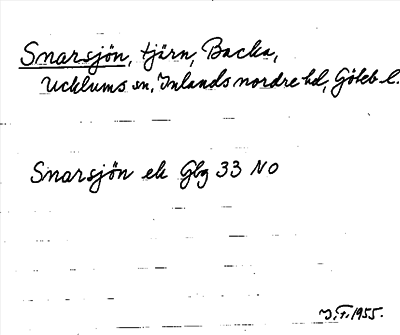 Snarsjön, tjärn, Backa,
Ucklums sn, Inlands nordre hd, Göteb l.
Snarsjön ek Gbg 33 NO
J.F. 1955.